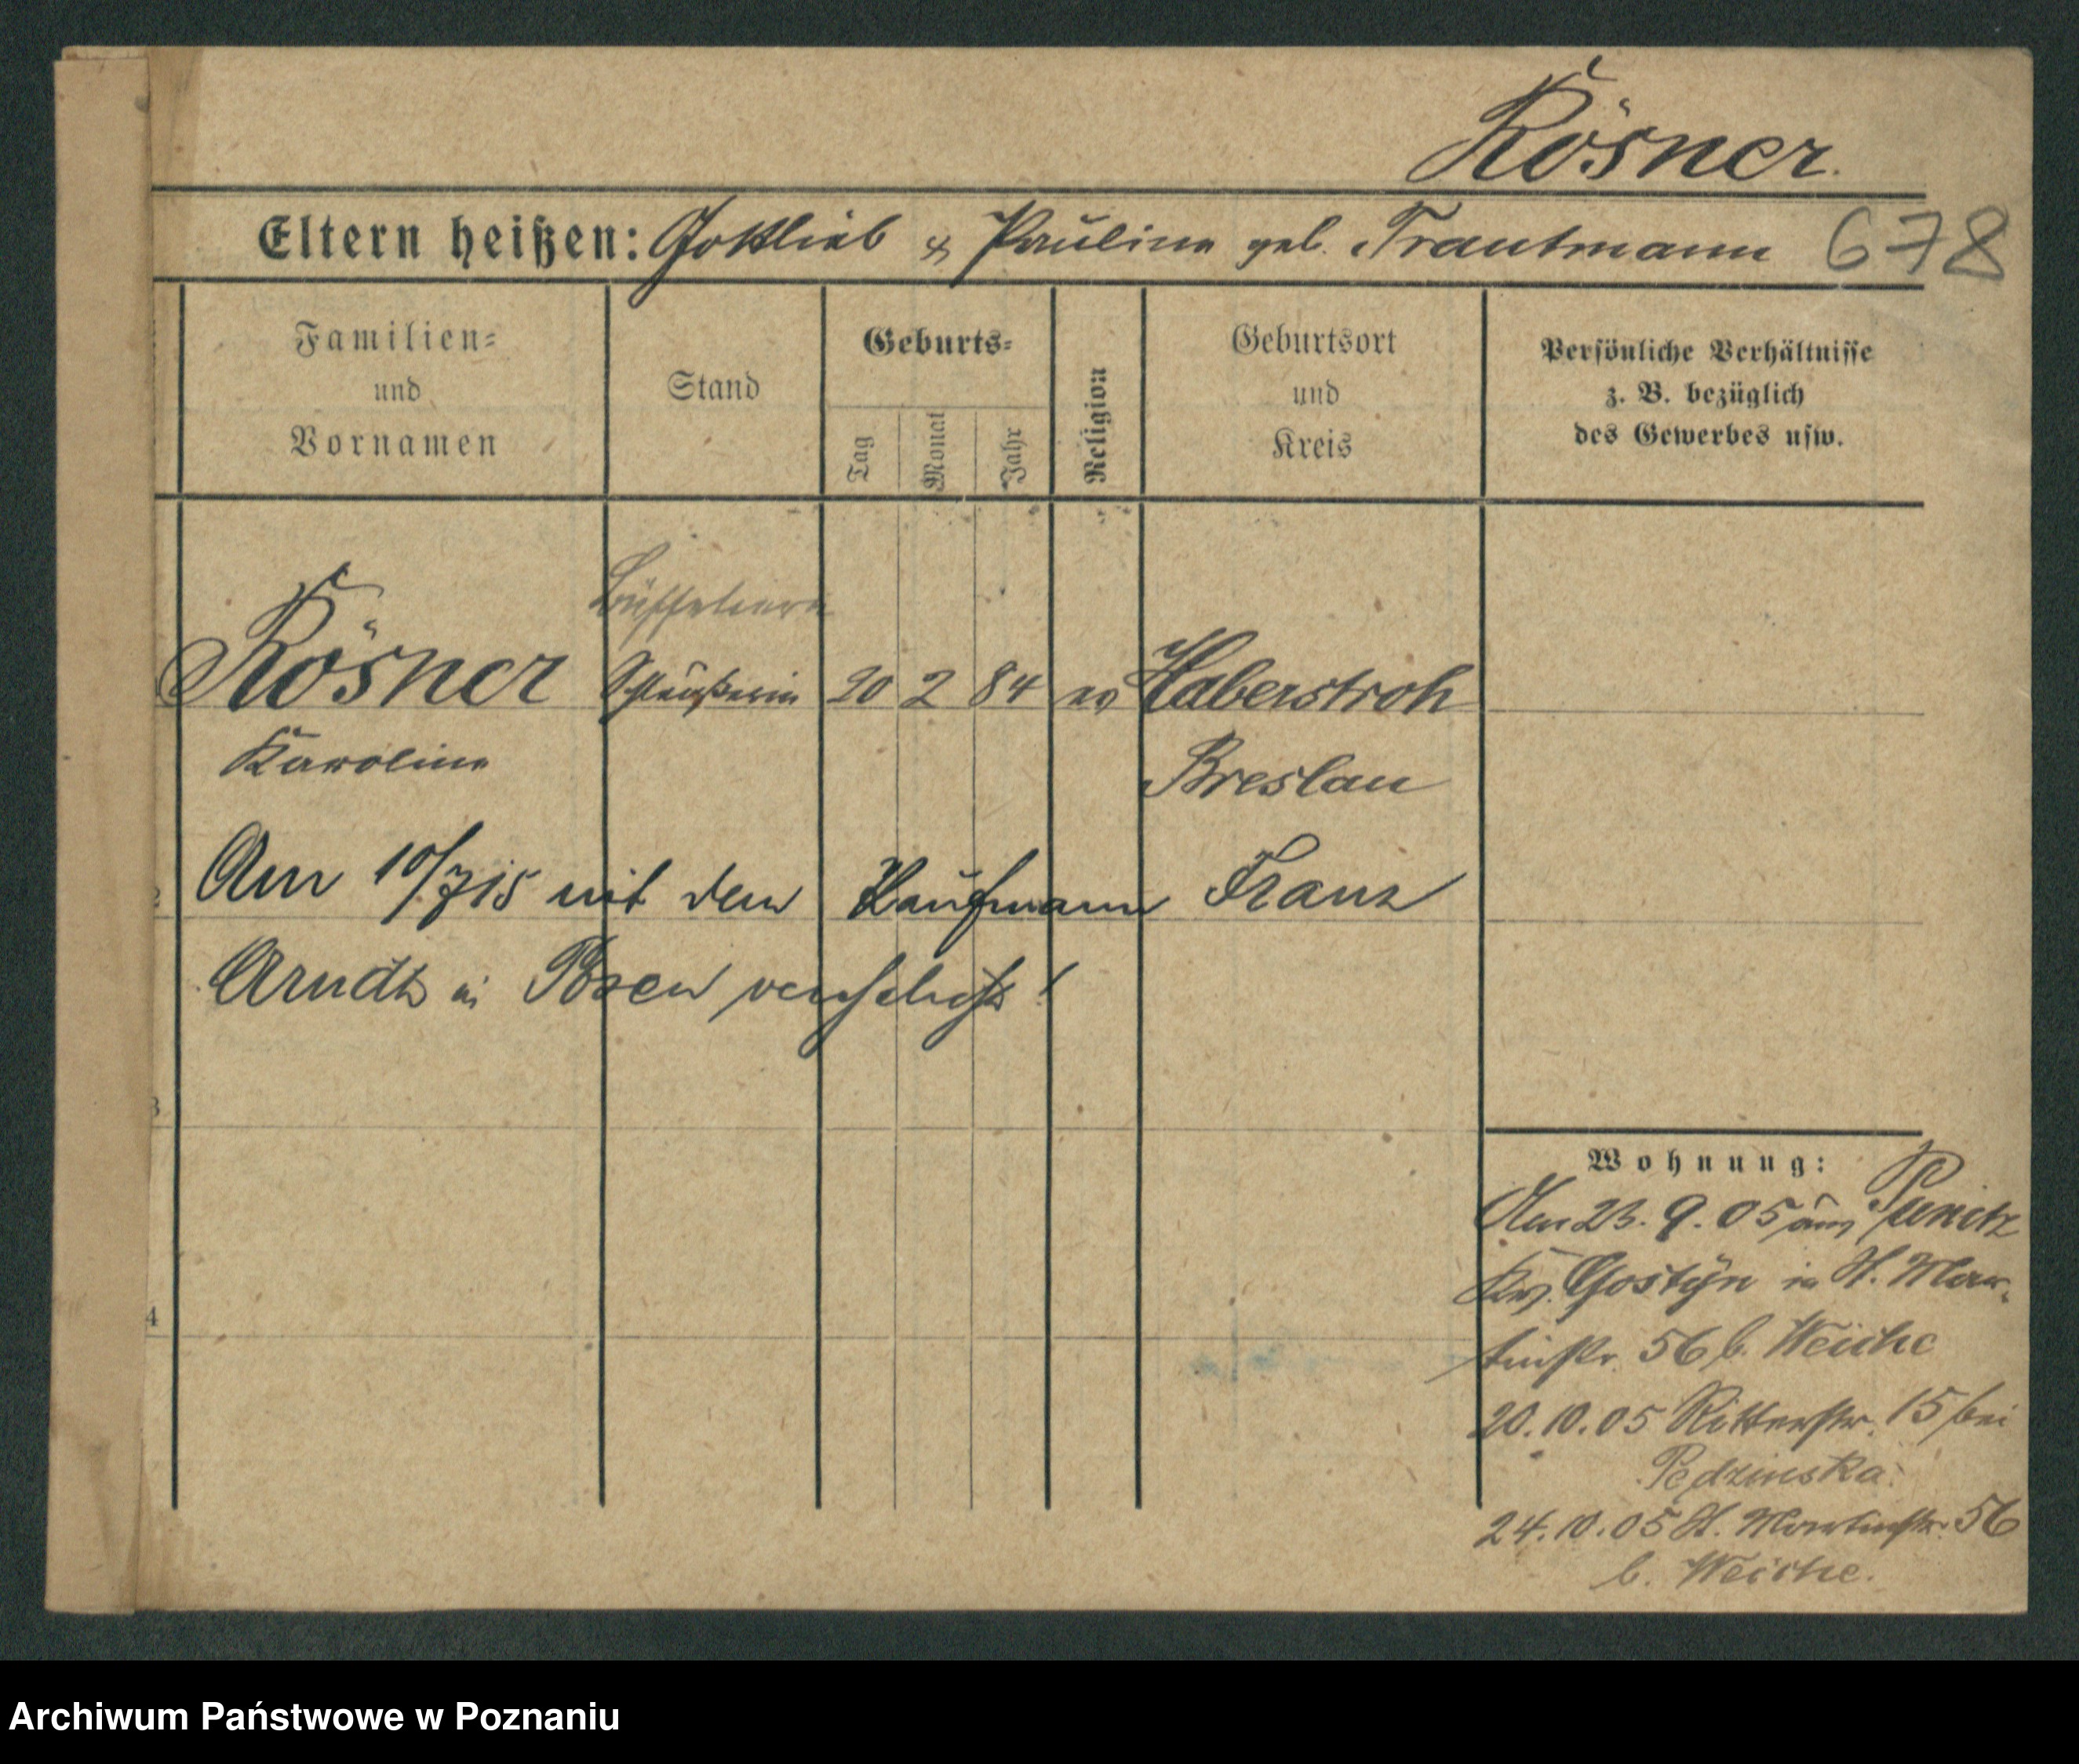 Rösner.
Eltern heißen: Gottlieb & Pauline geb. Trautmann 678
Familien-
und
Vornamen
Stand
Geburts-
Tag
Monat
Jahr
Religion
Geburtsort
und
Kreis
Persönliche Verhältnisse
z. B. bezüglich
des Gewerbes usw.
Rösner 20 2 84 ev Haberstroh
Karoline
Breslau
2
Am 10/7 15 mit dem Kaufmann Franz
Arndt in Posen verehelicht!
3
4
Wohnung:
Am 23. 9. 05 aus Punitz
Krs. Gostyn in St. Mar-
tinstr. 56 b. Weiche
20. 10. 05 Ritterstr. 15 bei
Pedzinska.
24. 10. 05 St. Martinstr. 56
b. Weiche.
Archiwum Państwowe w Poznaniu